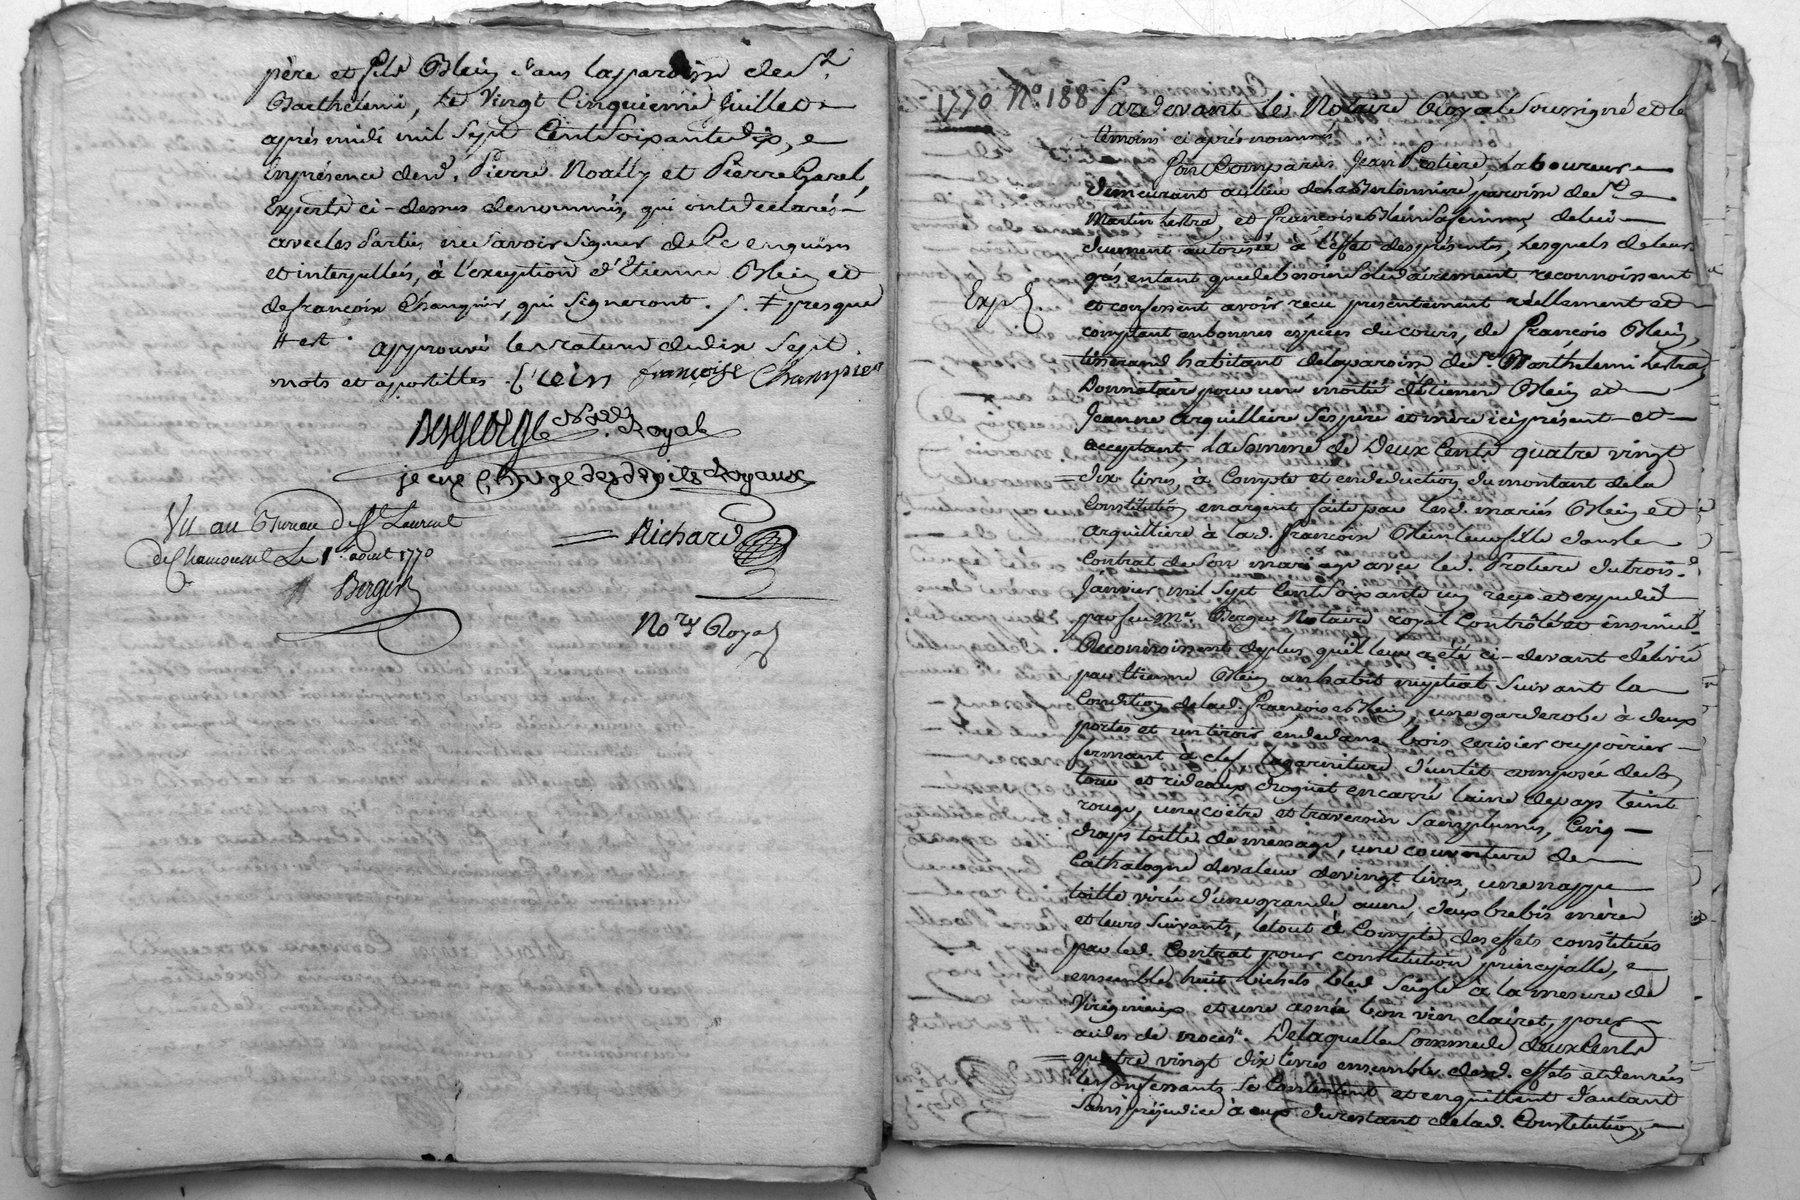 père et fils Blein dans la parroisse de St.
Barthelemi, le Vingt Cinquieme Juillet
après midi mil Sept Cent Soixante dix,
En présence de Pierre Noally et Pierre Garel,
Experts ci-dessus denommés, qui ont déclarés
avec les Parties ne savoir Signer de ce enquis
et interpellés, à l'exception d'Etienne Blein et
de françois Champier, qui Signeront. presque
est. approuvé les ratures de dix Sept
mots et apostilles. Blein françoise Champier
Desgeorge No.re Royal
je me Charge des droits Royaux
Vu au Bureau de St Laurent
de Chamousset Le 1. aout 1770
Richard
Berger
No.re Royal
1770 No. 188 Pardevant les Notaire Royal Soussigné et les
temoins ci après nommés
Sont Comparus Jean Protiere, Laboureur
demeurant au lieu de la Berlionniere, paroisse de St.
Martin Lestra, et françoise Blein Sa femme, de lui
duement autorisée à l'effet des présentes, Lesquels de leur
grés en tant que de besoin Solidairement reconnoissent
Exp.
et confessent avoir reçu presentement réellement et
comptant en bonnes espèces du cours, de françois Blein,
tisserand habitant de la paroisse de St. Barthelemi Lestra
Donnataire pour une moitié d'Etienne Blein et
Jeanne Arquilliere Ses père et mère ici présent et
acceptant, La Somme de Deux Cents quatre vingt
dix livres, à Compte et en deduction du montant de la
Constitution en argent faite par lesd. mariés Blein et
Arquilliere à lad. françoise Blein leur fille dans le
Contrat de Son mariage avec led. Protiere du trois
Janvier mil Sept Cent Soixante un reçu et expedié
par feu Me. Berger Notaire royal Contrôlé et insinué.
Reconnoissent de plus qu'il leur a été ci-devant délivré
par Etienne Blein un habit nuptial Suivant la
Condition de lad. françoise Blein, une garderobe à deux
portes et un tiroir en dedans bois cerisier ou poirier
fermant à clef, la garniture d'un lit composée de Son
tour et rideaux droguet en carré laine de pays teint
rouge, une coëtre et traversin Sans plumes, Cinq
draps toille de menage, une couverture de
Cathalogne de valeur de vingt livres, une nappe
toille virée d'une grande aune, deux brebis mères
et leurs Suivants, le tout à Compte des effets constitués
par led. Contrat pour constitution principalle,
ensemble huit bichets bled Seigle à la mesure de
Virignieux et une anée bon vin clairet, pour
aides de noces. De laquelle Somme de deux Cents
quatre vingt dix livres ensemble desd. effets et denrées
les Confessants Se Contentent et en quittent d'autant
Sans préjudice à eux du restant de lad. Constitution,